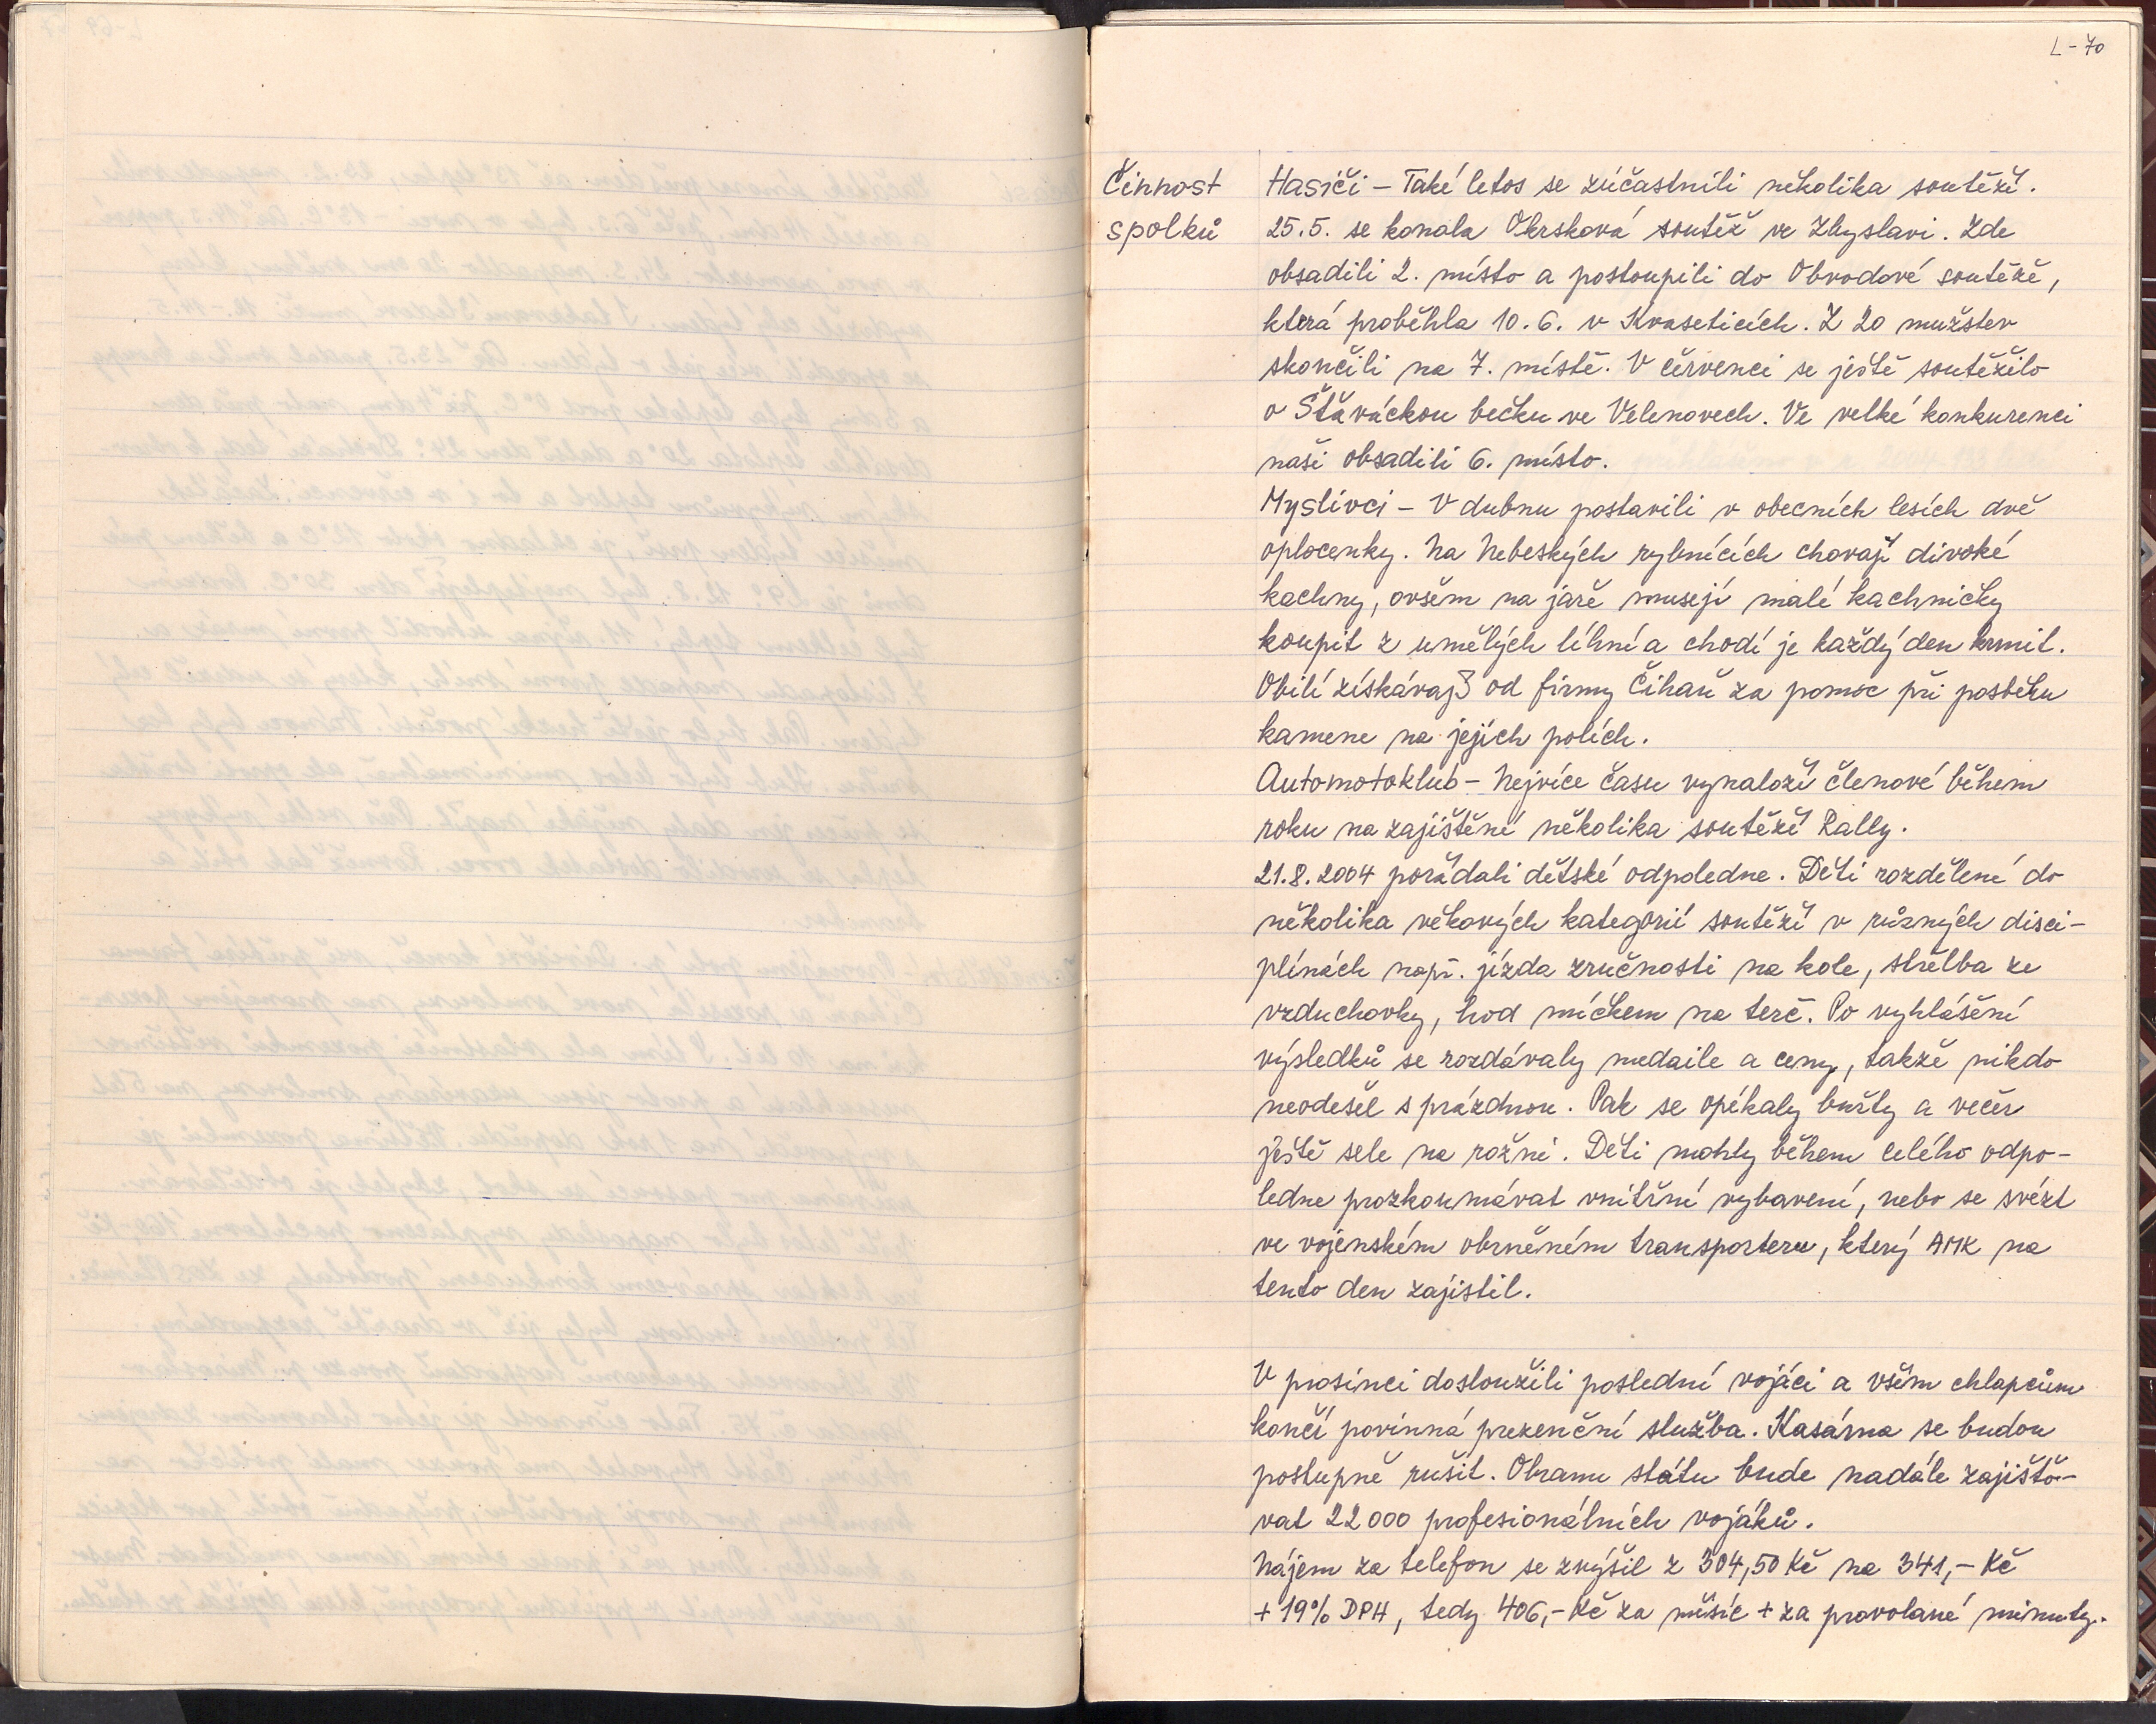 L-70
Činnost
spolků
Hasiči – Také letos se zúčastnili několika soutěží.
25.5. se konala Okrsková soutěž ve Zbyslavi. Zde
obsadili 2. místo a postoupili do Obvodové soutěže,
která proběhla 10.6. v Kvaseticích. Z 20 mužstev
skončili na 7. místě. V červenci se ještě soutěžilo
o Šťáváckou bečku ve Velenovech. Ve velké konkurenci
naši obsadili 6. místo.
Myslivci – V dubnu postavili v obecních lesích dvě
oplocenky. Na Nebeských rybnících chovají divoké
kachny, ovšem na jaře musejí malé kachničky
koupit z umělých líhní a chodí je každý den krmit.
Obilí získávají od firmy Čihař za pomoc při posběhu
kamene na jejich polích.
Automotoklub – Nejvíce času vynaloží členové během
roku na zajištění několika soutěží Rally.
21.8.2004 pořádali dětské odpoledne. Děti rozdělené do
několika věkových kategorií soutěží v různých disci-
plínách např. jízda zručnosti na kole, střelba ze
vzduchovky, hod míčkem na terč. Po vyhlášení
výsledků se rozdávaly medaile a ceny, takže nikdo
neodešel s prázdnou. Pak se opékaly buřty a večer
ještě sele na rožni. Děti mohly během celého odpo-
ledne prozkoumávat vnitřní vybavení, nebo se svézt
ve vojenském obrněném transporteru, který AMK na
tento den zajistil.
V prosinci dosloužili poslední vojáci a všem chlapcům
končí povinná prezenční služba. Kasárna se budou
postupně rušit. Obranu státu bude nadále zajišťo-
vat 22000 profesionálních vojáků.
Nájem za telefon se zvýšil z 304,50 Kč na 341,– Kč
+ 19% DPH, tedy 406,– Kč za měsíc + za provolané minuty.